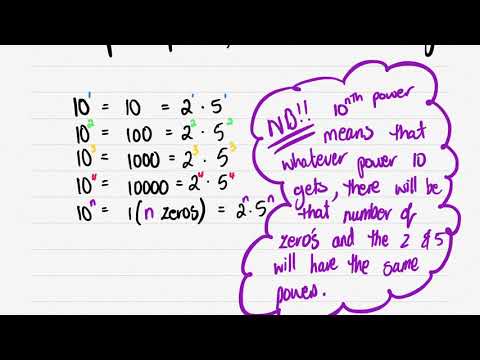 10¹ = 10 = 2¹ · 5¹
10² = 100 = 2² · 5²
10³ = 1000 = 2³ · 5³
10⁴ = 10000 = 2⁴ · 5⁴
10ⁿ = 1(n zero's) = 2ⁿ · 5ⁿ
NB!! 10ⁿᵗʰ power
means that
whatever power 10
gets, there will be
that number of
zero's and the 2 & 5
will have the same
power.